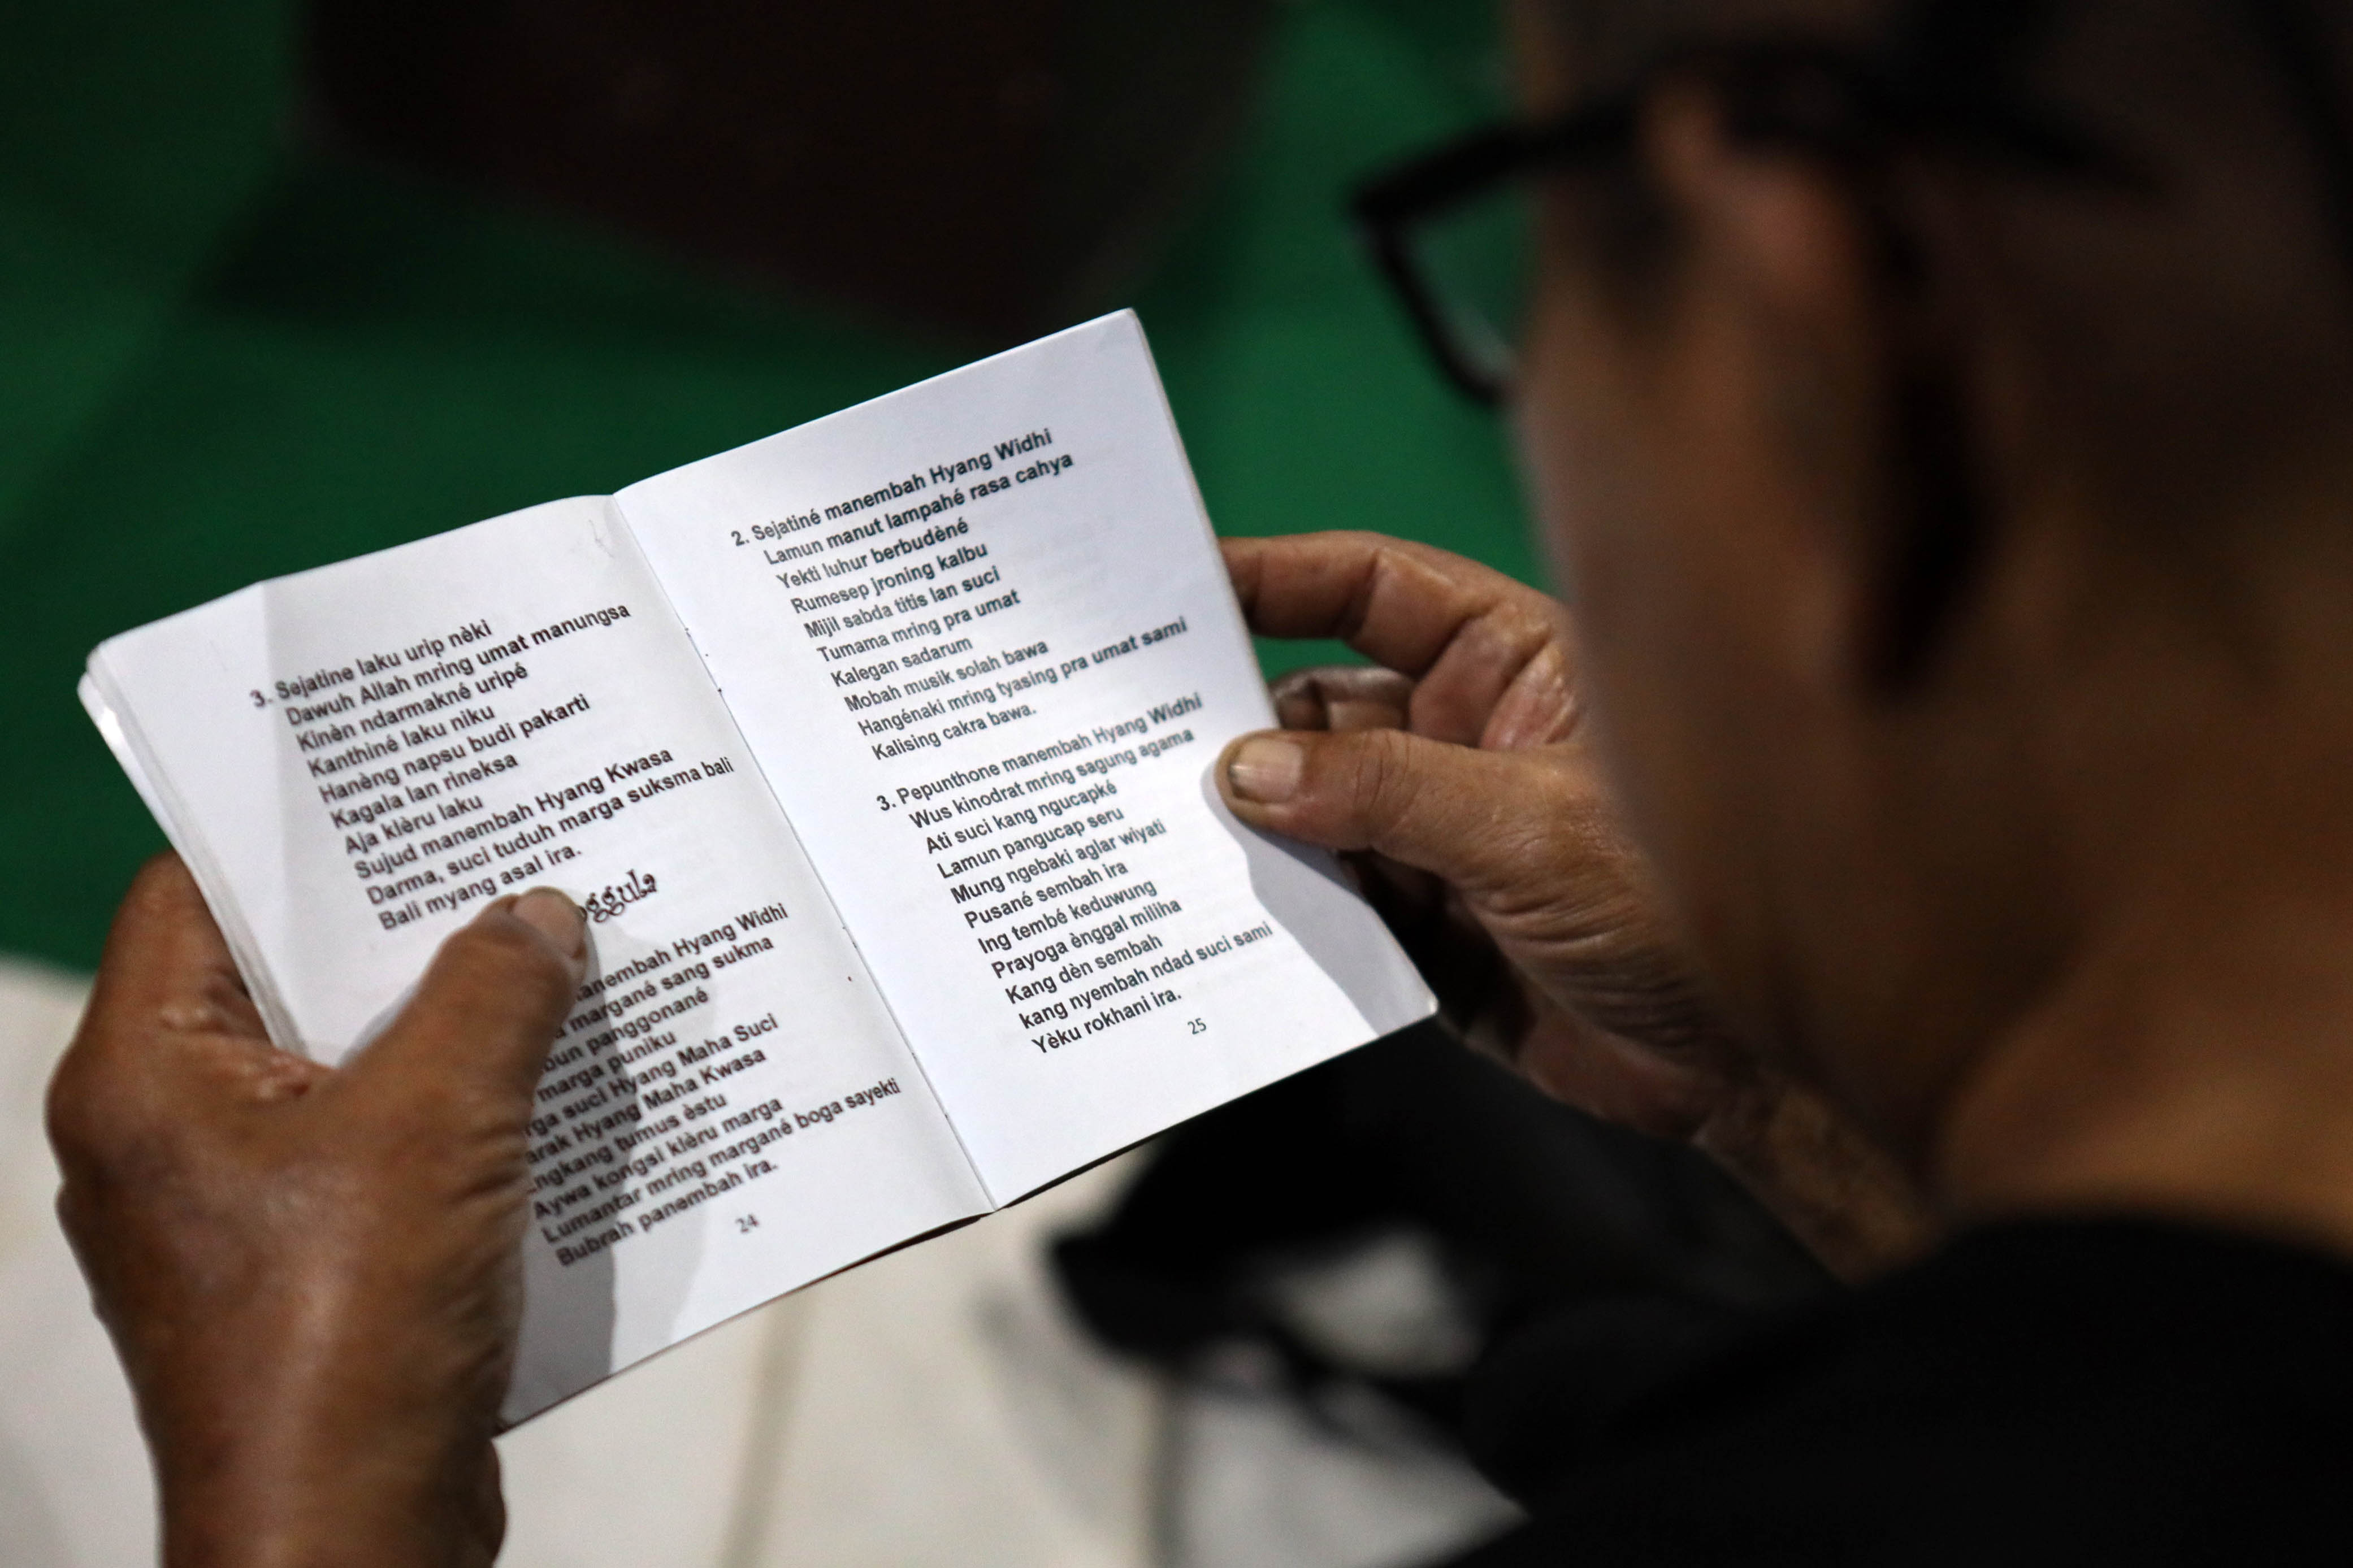 3. Sejatine laku urip nèki
Dawuh Allah mring umat manungsa
Kinèn ndarmakné uripé
Kanthiné laku niku
Hanèng napsu budi pakarti
Kagala lan rineksa
Aja klèru laku
Sujud manembah Hyang Kwasa
Darma, suci tuduh marga suksma bali
Bali myang asal ira.
Hyang Widhi
margané sang sukma
panggonané
marga puniku
suci Hyang Maha Suci
Hyang Maha Kwasa
tumus èstu
Aywa kongsi klèru marga
Lumantar mring margané boga sayekti
Bubrah panembah ira.
24
2. Sejatiné manembah Hyang Widhi
Lamun manut lampahé rasa cahya
Yekti luhur berbudèné
Rumesep jroning kalbu
Mijil sabda titis lan suci
Tumama mring pra umat
Kalegan sadarum
Mobah musik solah bawa
Hangénaki mring tyasing pra umat sami
Kalising cakra bawa.
3. Pepunthone manembah Hyang Widhi
Wus kinodrat mring sagung agama
Ati suci kang ngucapké
Lamun pangucap seru
Mung ngebaki aglar wiyati
Pusané sembah ira
Ing tembé keduwung
Prayoga ènggal miliha
Kang dèn sembah
kang nyembah ndad suci sami
Yèku rokhani ira.
25